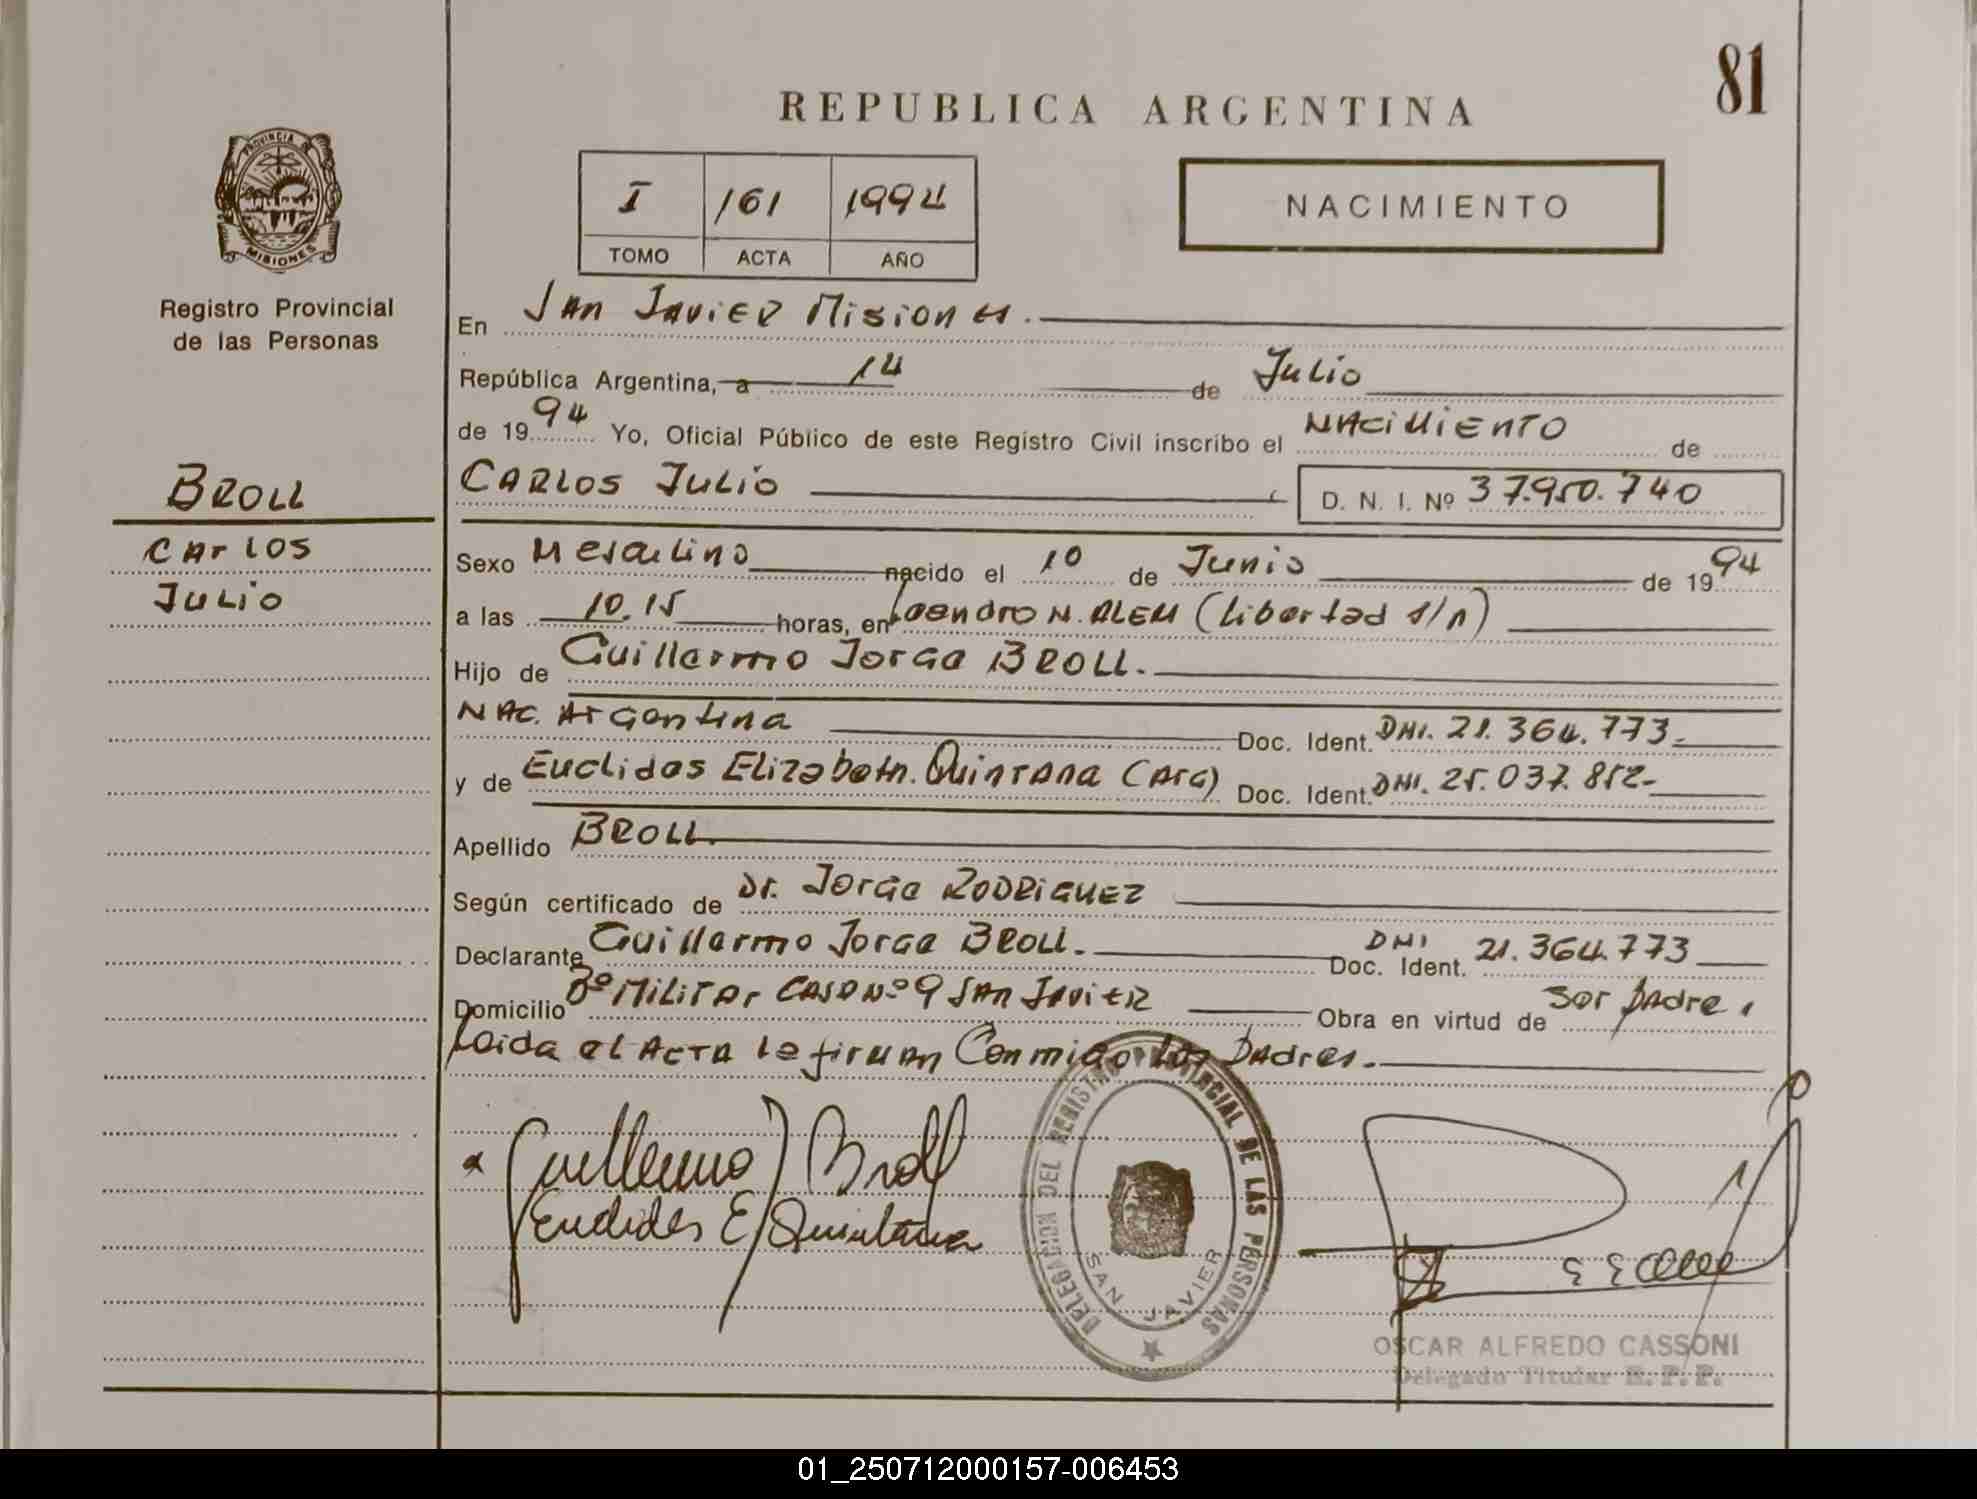 81
REPUBLICA ARGENTINA
PROVINCIA DE
MISIONES
Registro Provincial
de las Personas
I 161 1994
TOMO ACTA AÑO
NACIMIENTO
En San Javier Misiones.
República Argentina, a 14 de Julio
de 1994 Yo, Oficial Público de este Registro Civil inscribo el NACIMIENTO de
CARLOS JULIO D. N. I. Nº 37.950.740
BROLL
Carlos
Julio
Sexo Mesculino nacido el 10 de Junio de 1994
a las 10.15 horas, en Leandro N. ALEM (Libertad s/n)
Hijo de Guillermo Jorge BROLL.
NAC. Argentina Doc. Ident. DNI. 21.364.773.-
y de Euclides Elizabeth. Quintana (Arg) Doc. Ident. DNI. 25.037.852-
Apellido BROLL
Según certificado de Dr. Jorge RODRIGUEZ
Declarante Guillermo Jorge BROLL. Doc. Ident. DNI 21.364.773
Domicilio Bº Militar Casa Nº 9 San Javier Obra en virtud de ser padre,
Leida el Acta la firman Conmigo los Padres.
Guillermo J Broll
Euclides E Quintana
DELEGACION DEL REGISTRO PROVINCIAL DE LAS PERSONAS
SAN JAVIER
OSCAR ALFREDO CASSONI
Delegado Titular R.P.P.
01_250712000157-006453